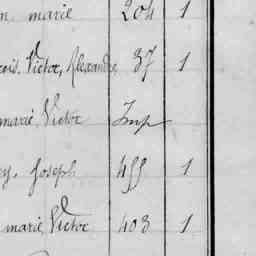 marie 204 1
Victor, Alexandre 37 1
marie Victor Imp
Joseph 455 1
marie Victor 403 1